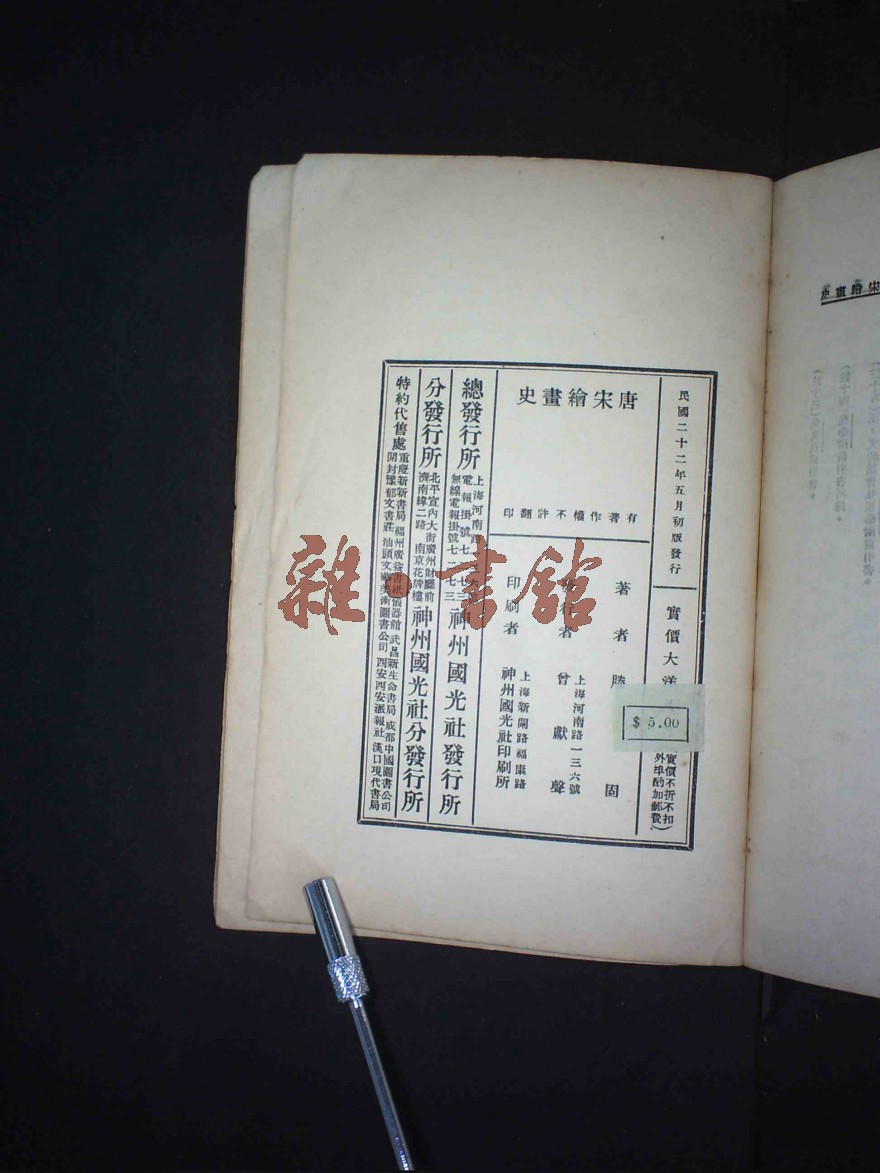 民國二十二年五月初版發行
實價大洋
(實價不折不扣
外埠酌加郵費)
$ 5.00
唐宋繪畫史
有著作權不許翻印
著者 陸 固
發行者 曾獻聲
上海河南路一三六號
印刷者 神州國光社印刷所
上海新閘路福康路
總發行所
上海河南路
電報掛號七一七三
無線電報掛號七一七三
神州國光社發行所
分發行所
北平宣內大街 廣州財廳前
濟南緯二路 南京花牌樓
神州國光社分發行所
特約代售處
重慶新新書局 福州廣益書紙儀器館 武昌新生命書局 成都中國圖書公司
開封豫郁文書莊 汕頭文 美術圖書公司 西安西安派報社 漢口現代書局
宋繪畫史
雜·書館